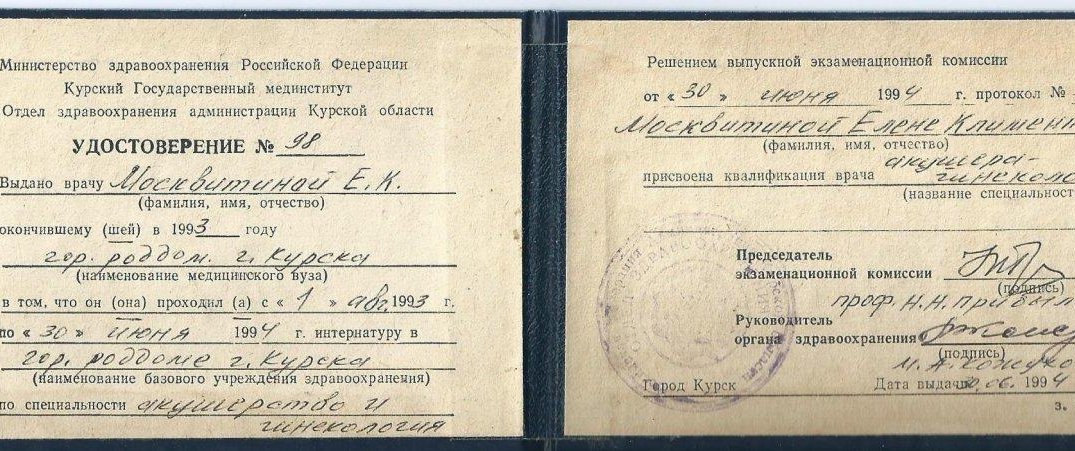 Министерство здравоохранения Российской Федерации
Курский Государственный мединститут
Отдел здравоохранения администрации Курской области
УДОСТОВЕРЕНИЕ № 98
Выдано врачу Москвитиной Е.К.
(фамилия, имя, отчество)
окончившему (шей) в 1993 году
гор. роддом. г. Курска
(наименование медицинского вуза)
в том, что он (она) проходил (а) с « 1 » авг. 1993 г.
по « 30 » июня 1994 г. интернатуру в
гор. роддоме г. Курска
(наименование базового учреждения здравоохранения)
по специальности акушерство и
гинекология
Решением выпускной экзаменационной комиссии
от « 30 » июня 1994 г. протокол №
Москвитиной Елене
(фамилия, имя, отчество)
акушера-
присвоена квалификация врача гинеколо
(название специальност
Председатель
экзаменационной комиссии
(подпись)
проф. Н.Н.
Руководитель
органа здравоохранения
(подпись)
М.А.
Город Курск Дата выдачи 06. 1994
з.